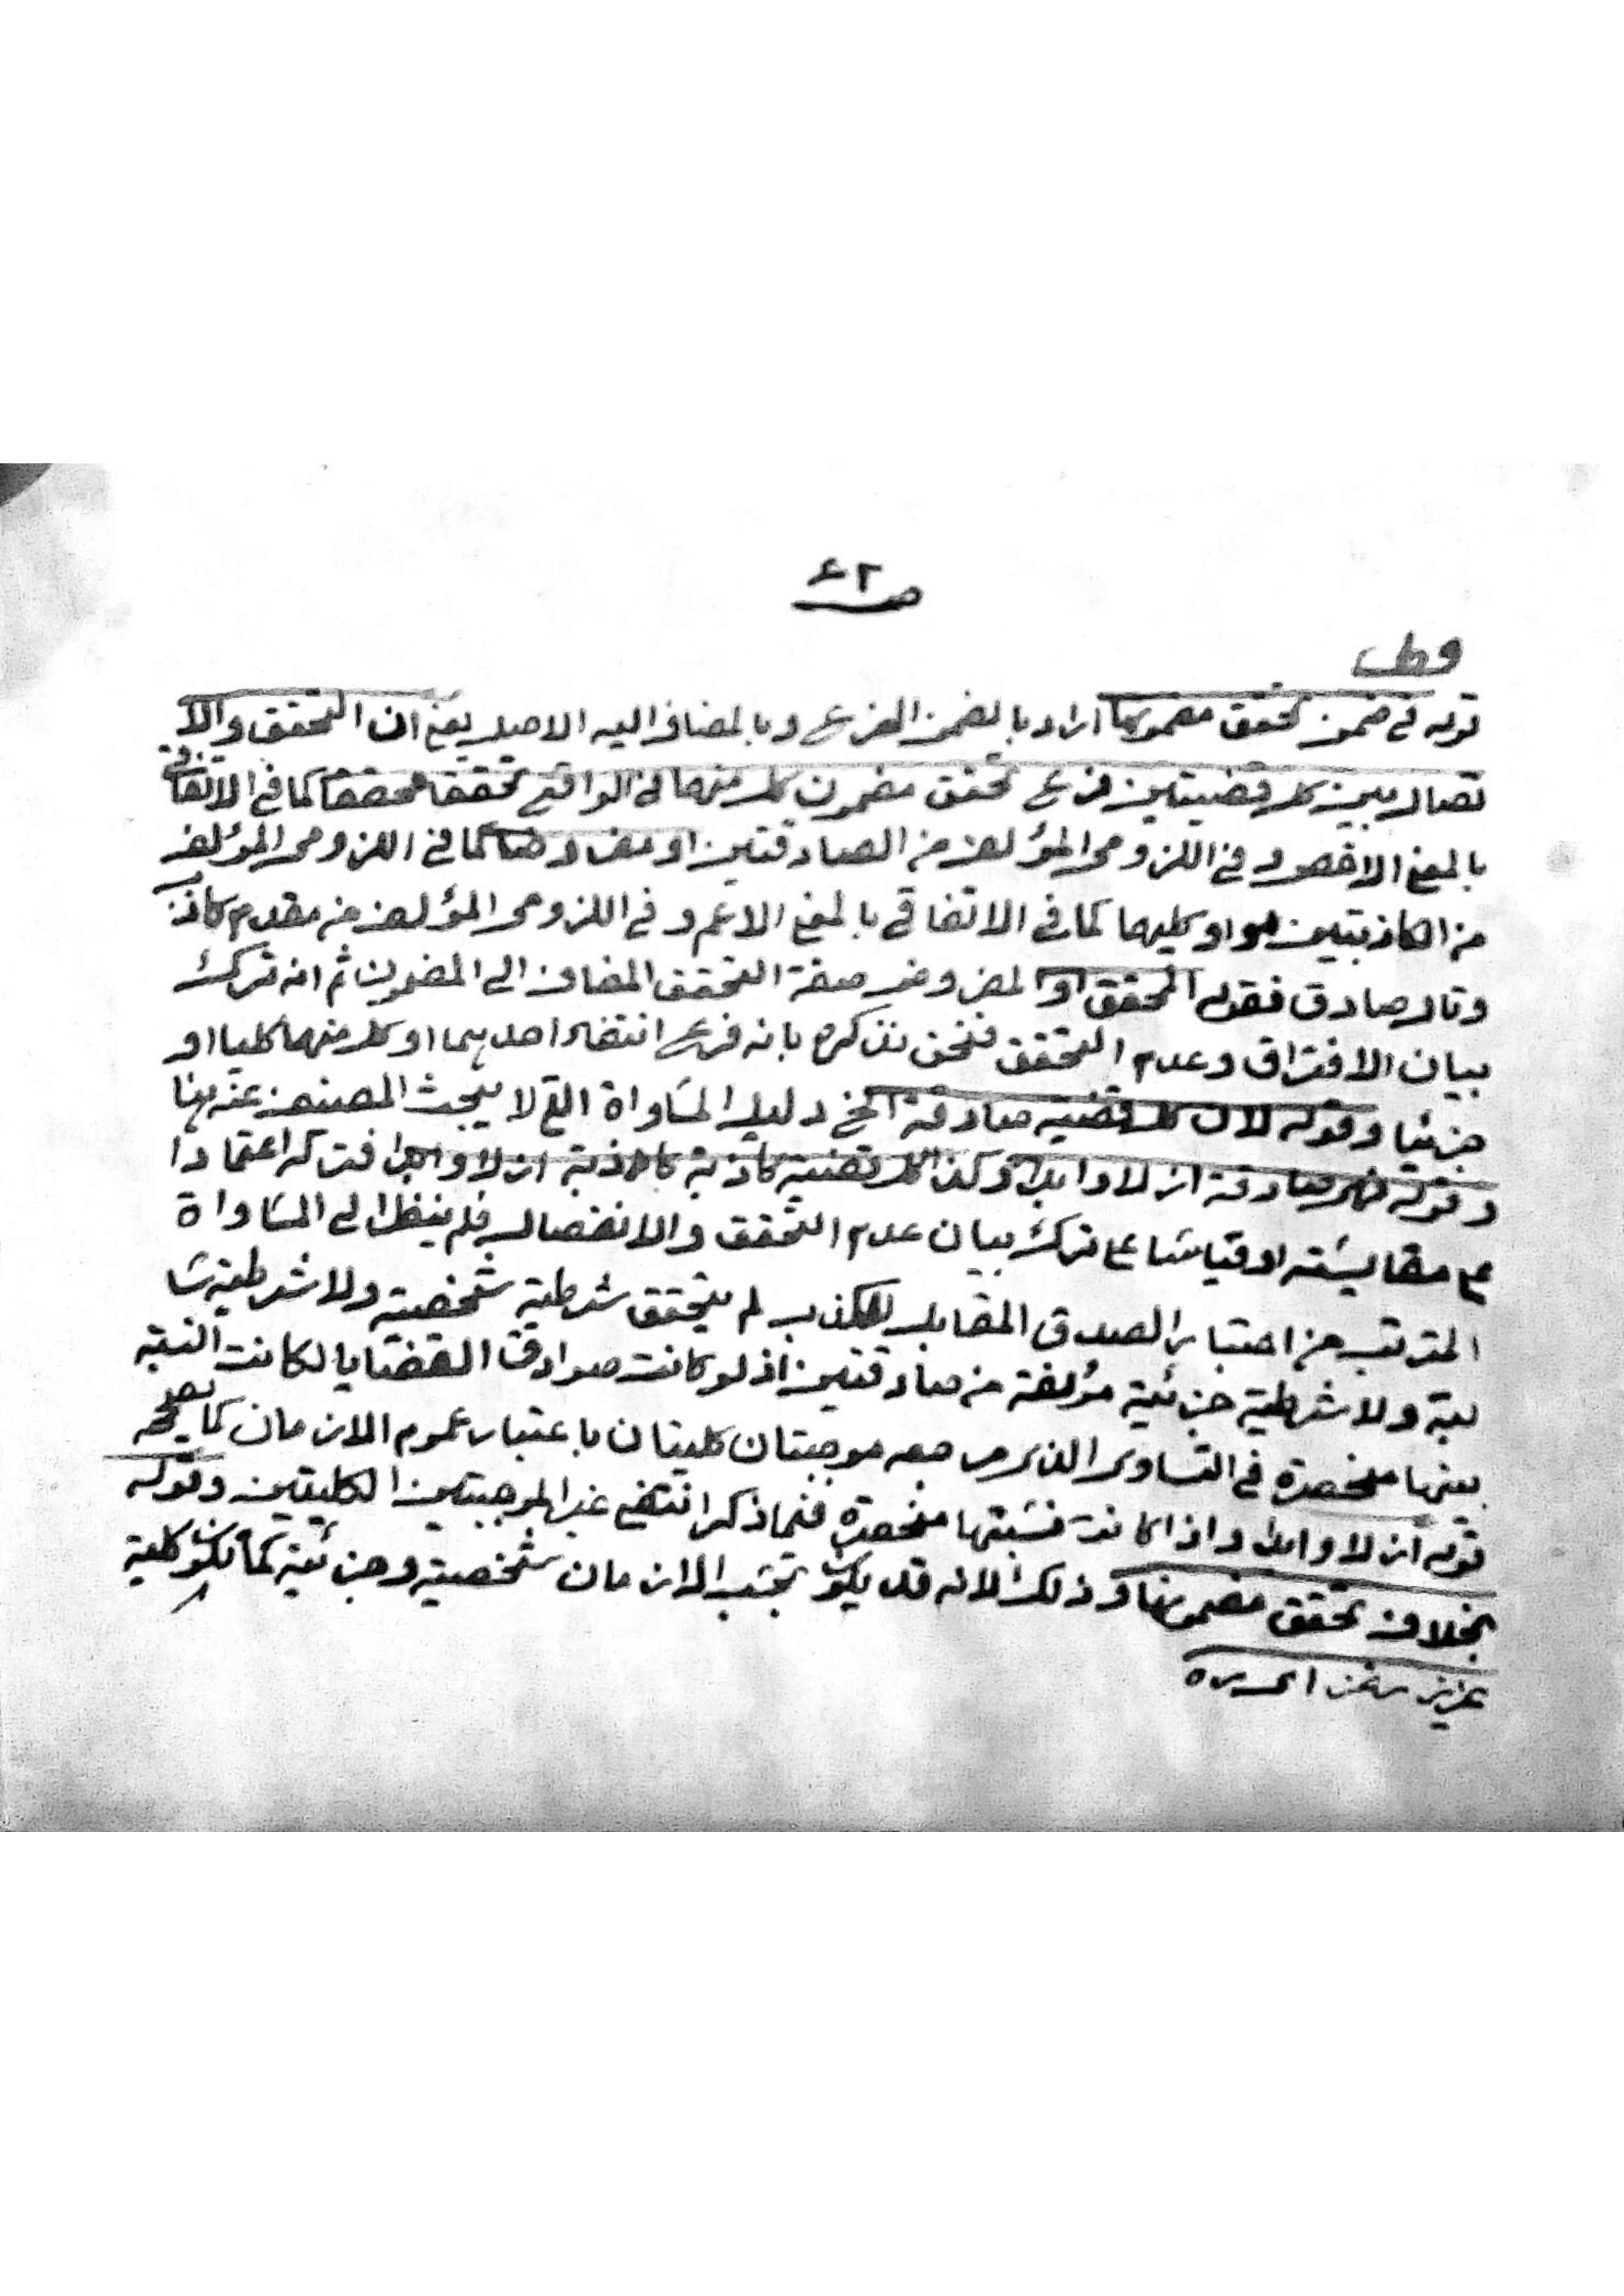 ص ٤٢
قوله في ضمن تحقق مضمونها اراد بالضمن الفرع وبالمضاف اليه الاصيل يعنى ان التحقق والا
تصال بين كل قضيتين فرع تحقق مضمون كل منهما في الواقع تحققا محققا كما في الاتفاقي
بالمعنى الاخص وفي اللزومي المؤلف من الصادقتين او مفروضا كما في اللزومي المؤلف
من الكاذبتين او كليهما كما في الاتفاقي بالمعنى الاعم وفي اللزومي المؤلف من مقدم كاذب
وتال صادق فقوله المحقق او المفروض صفة التحقق المضاف الى المضمون ثم انه ترك
بيان الافتراق وعدم التحقق فنحن نذكره بانه فرع انتفاء احديهما او كل منهما كليا او
جزئيا وقوله لان كل قضية صادقة الخ دليل المساواة التي لا يبحث المصنف عنه هنا
وقوله فهي صادقة ازلا وابدا وكذا كل قضية كاذبة كاذبة ازلا وابدا فتركه اعتمادا
على مقايسته او قياسا على ترك بيان عدم التحقق والانفصال فلم ينظر الى المساواة
المترتب من اعتبار الصدق المقابل للكذب لم يتحقق شرطية شخصية ولا شرطية سا
لبة ولا شرطية جزئية مؤلفة من صادقتين اذ لو كانت صوادق القضايا لكانت النسبة
بينها منحصرة في التساوي الذي مرجعه موجبتان كليتان باعتبار عموم الازمان كما يصرحه
قوله ازلا وابدا واذا كانت نسبتها منحصرة فيما ذكر انتفى غير الموجبتين الكليتين وقوله
بخلاف تحقق مضمونها وذلك لانه قد يكون بحسب الازمان شخصية وجزئية كما يكون كلية
عزيز